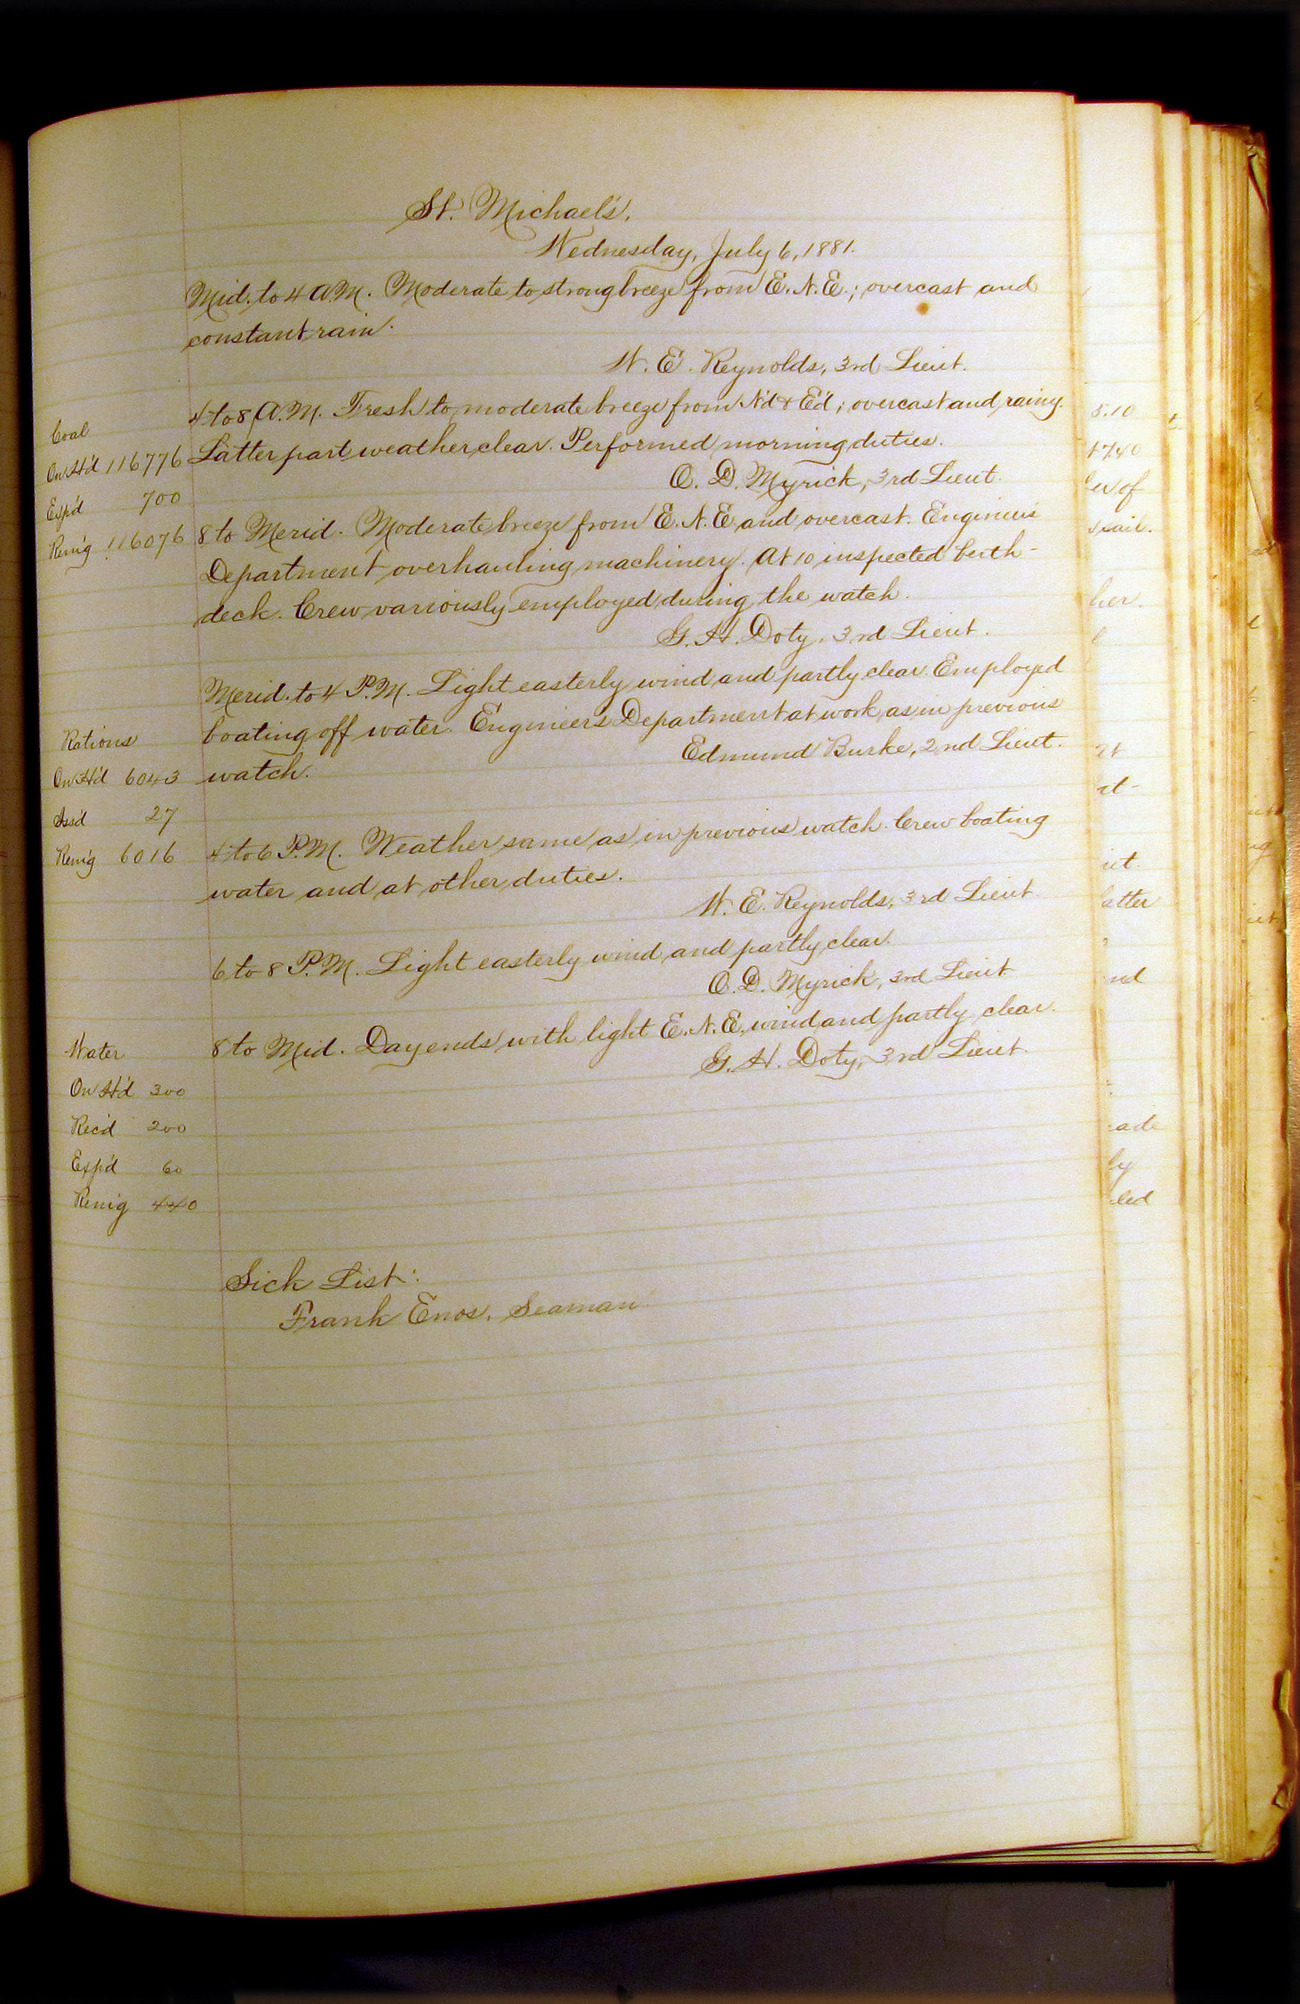 St. Michael's,
Wednesday, July 6, 1881.
Mid. to 4 A.M. Moderate to strong breeze from E.N.E.; overcast and
constant rain.
W. E. Reynolds, 3rd Lieut.
4 to 8 A.M. Fresh to moderate breeze from N'd & E'd; overcast and rainy.
Latter part weather clear. Performed morning duties.
O. D. Myrick, 3rd Lieut.
8 to Merid. Moderate breeze from E.N.E. and overcast. Engineers
Department overhauling machinery. At 10 inspected berth-
deck. Crew variously employed during the watch.
G. H. Doty, 3rd Lieut.
Merid. to 4 P.M. Light easterly wind and partly clear. Employed
boating off water. Engineers Department at work as in previous
watch.
Edmund Burke, 2nd Lieut.
4 to 6 P.M. Weather same as in previous watch. Crew boating
water and at other duties.
W. E. Reynolds, 3rd Lieut.
6 to 8 P.M. Light easterly wind and partly clear.
O. D. Myrick, 3rd Lieut
8 to Mid. Day ends with light E.N.E. wind and partly clear.
G. H. Doty, 3rd Lieut.
Coal
On H'd 116776
Exp'd 700
Rem'g 116076
Rations
On H'd 6043
Iss'd 27
Rem'g 6016
Water
On H'd 300
Rec'd 200
Exp'd 60
Rem'g 440
Sick List:
Frank Enos, Seaman